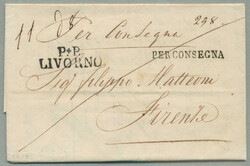 Per Consegna 248
P*P.
LIVORNO
PER CONSEGNA
Sig.r Filippo Matteoni
Firenze